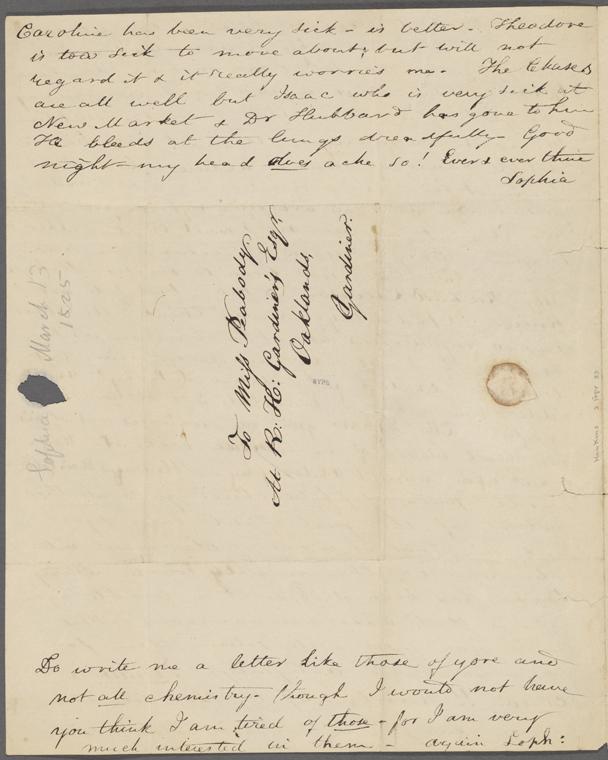 Caroline has been very sick - is better - Theodore
is too sick to move about, but will not
regard it & it really worries me - The Chases
are all well but Isaac who is very sick at
New Market & Dr Hubbard has gone to him
He bleeds at the lungs dreadfully - Good
night - my head does ache so! Ever & ever thine
Sophia
To Miss Peabody,
At R: H: Gardiner's Esqr
Oaklands,
Gardiner.
NYPL
Sophia March 13
1825
Do write me a letter like those of yore and
not all chemistry - though I would not have
you think I am tired of those - for I am very
much interested in them - again Soph: